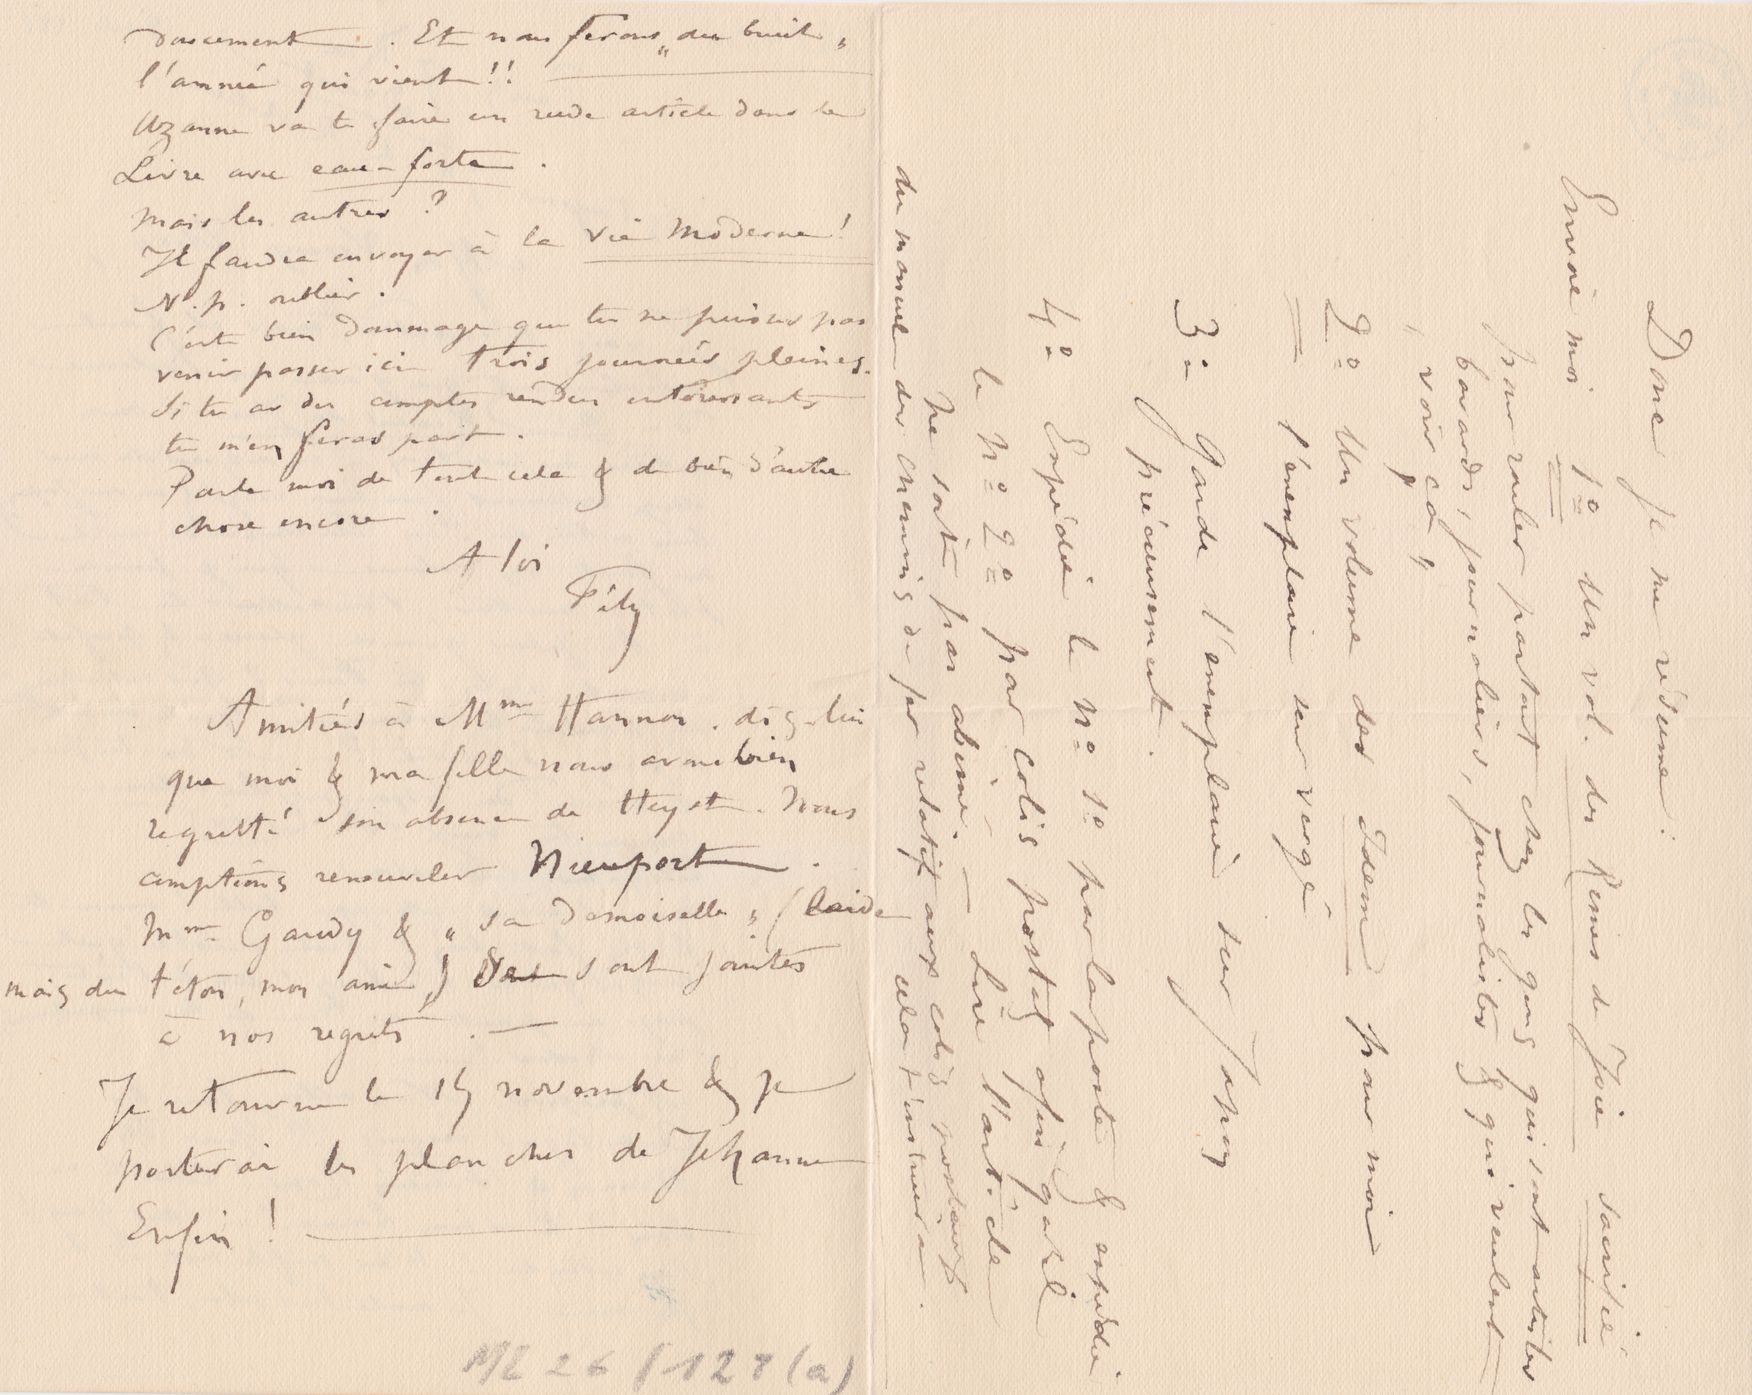 doucement. Et nous ferons „du bruit„
l'année qui vient!!
Uzanne va te faire un rude article dans le
Livre avec eau-forte.
Mais les autres?
Il faudra envoyer à la Vie Moderne!
N. p. oublier.
C'est bien dommage que tu ne puisses pas
venir passer ici trois journées pleines.
Si tu as des comptes rendus intéressants
tu m'en feras part.
Parle moi de tout cela & de bien d'autre
chose encore.
A toi
Fély
Amitiés à Mme Hannon. dis-lui
que moi & ma fille nous avons bien
regretté son absence de Heyst. Nous
comptions renouveler Nieuport.
Mme Gandy & „sa demoiselle„ (laide
mais du téton, mon ami,) sont jointes
à nos regrets. —
Je retourne le 15 novembre & je
porterai les planches de Jehanne
Enfin!
ME 26/127(a)
Donc je me résume:
Envoie moi 1o Un vol. des Rimes de Joie sacrifié
pour rouler partout chez les gens qui sont artistes
bavards, journaliers, journalistes & qui veulent
„voir ça„
2o Un volume des Idem pour moi
l'exemplaire sur vergé
3o Garde l'exemplaire sur Japon
précieusement.
4o Expédie le No 1o par la poste & expédie
le No 2o par colis postal afin qu'il
ne soit pas abimé. — Lire l'article
du manuel des chemins de fer relatif aux colis postaux
cela t'instruira.